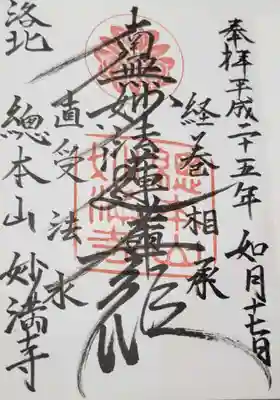 奉拝平成二十五年 如月十七日
経巻相承
南無妙法蓮華経
直受法水
洛北 總本山 妙満寺